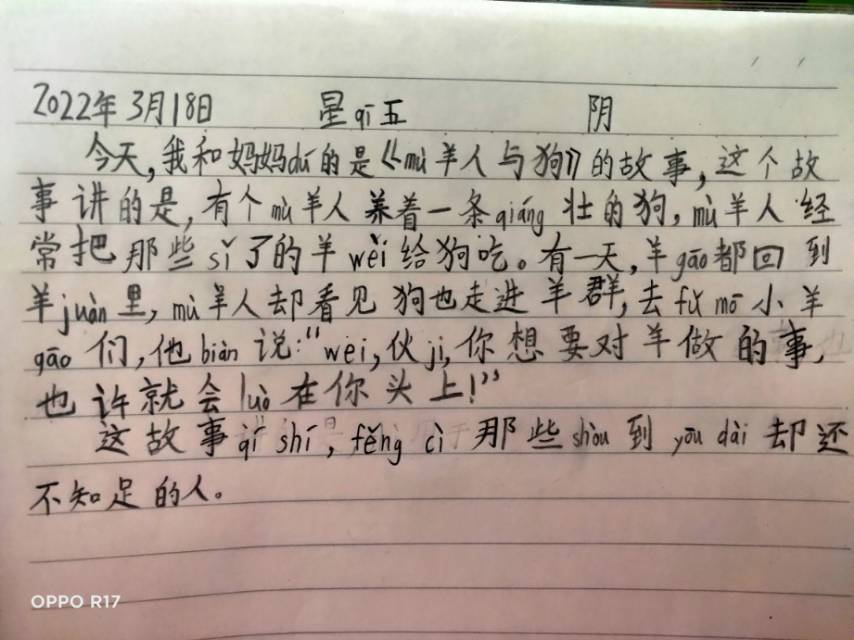 2022年3月18日 星qī五 阴
今天,我和妈妈dú的是《mù羊人与狗》的故事,这个故
事讲的是,有个mù羊人养着一条qiáng壮的狗,mù羊人经
常把那些sǐ了的羊wèi给狗吃。有一天,羊gāo都回到
羊juàn里,mù羊人却看见狗也走进羊群,去fǔ mō小羊
gāo们,他biàn说:“wèi,伙jì,你想要对羊做的事,
也许就会luò在你头上!”
这故事qí shí,fěng cì那些shòu到yōu dài却还
不知足的人。
OPPO R17